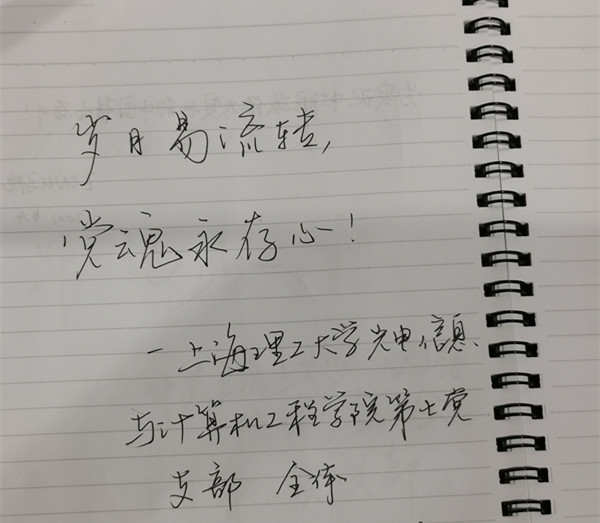 岁月易流转,
党魂永存心!
—上海理工大学光电信息
与计算机工程学院第七党
支部 全体